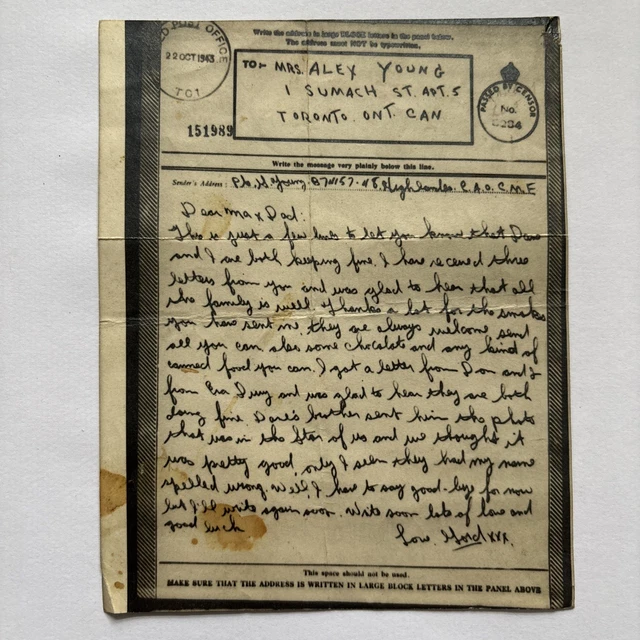 Write the address in large BLOCK letters in the panel below.
The address must NOT be typewritten.
FIELD POST OFFICE
22 OCT 1943
TC1
TO:- MRS. ALEX YOUNG
1 SUMACH ST. APT. 5
TORONTO. ONT. CAN
PASSED BY CENSOR
No.
151989
Write the message very plainly below this line.
Sender's Address: Pte. G. Young. B74157. 48 Highlanders. C.A.O. C.M.F
Dear Ma x Dad:
This is just a few lines to let you know that Dave
and I are both keeping fine. I have received three
letters from you and was glad to hear that all
the family is well. Thanks a lot for the smokes
you have sent me. they are always welcome send
all you can. also some chocolate and any kind of
canned food you can. I got a letter from Don and
from Guy and was glad to hear they are both
doing fine. Dave's brother sent him the photo
that was in the Star of us and we thought it
was pretty good, only I seen they had my name
spelled wrong. Well, I have to say good-bye for now
but I'll write again soon. Write soon lots of love and
good luck
Love. Gord xxx.
This space should not be used.
MAKE SURE THAT THE ADDRESS IS WRITTEN IN LARGE BLOCK LETTERS IN THE PANEL ABOVE